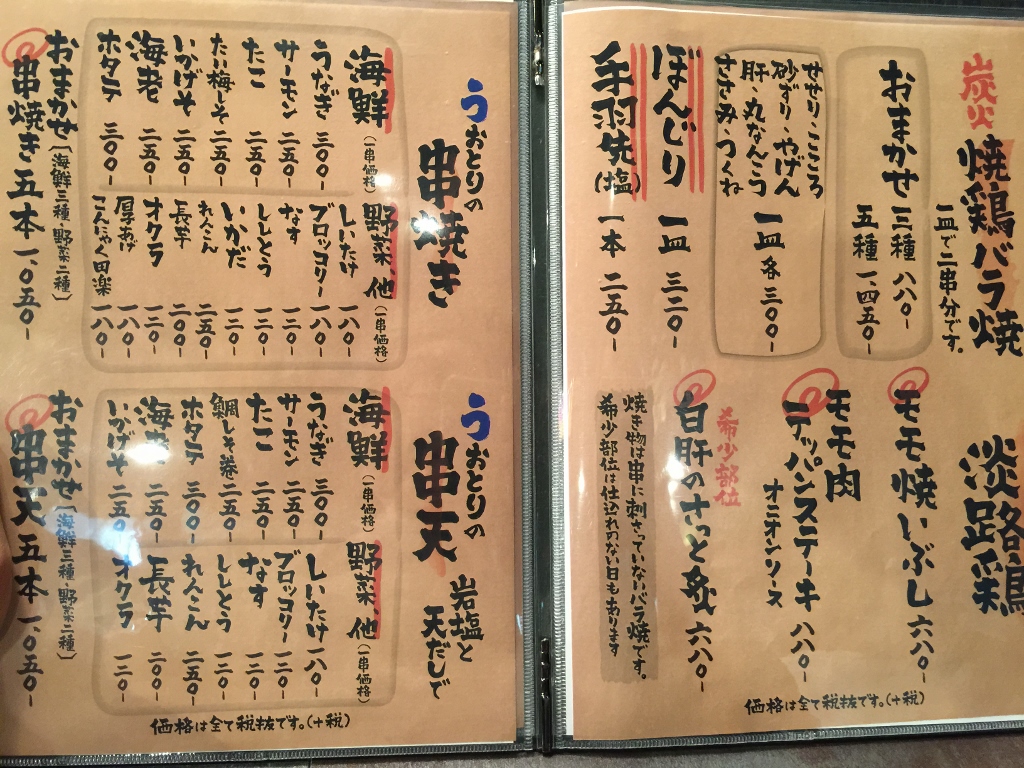 炭火
焼鶏バラ焼
一皿で二串分です。
おまかせ 三種 八八〇-
五種 一、四五〇-
せせり・こころ
砂ずり・やげん
肝・丸なんこつ
ささみ・つくね
一皿 各 三〇〇-
ぼんじり 一皿 三二〇-
手羽先(塩) 一本 二五〇-
淡路鶏
モモ焼いぶし 六八〇-
モモ肉
テッパンステーキ 八八〇-
オニオンソース
希少部位
白肝のさっと炙 六八〇-
焼き物は串に刺さっていないバラ焼です。
希少部位は仕込れのない日もあります
価格は全て税抜です。(+税)
うおとりの
串焼き
海鮮(一串価格)
うなぎ 三〇〇-
サーモン 二五〇-
たこ 二五〇-
たい梅しそ 二五〇-
いかげそ 二五〇-
海老 二五〇-
ホタテ 三〇〇-
野菜、他(一串価格)
しいたけ 一八〇-
ブロッコリー 一八〇-
なす 一二〇-
ししとう 一二〇-
いかだ 一二〇-
れんこん 二五〇-
長芋 二〇〇-
オクラ 一二〇-
厚あげ 一八〇-
こんにゃく田楽 一八〇-
おまかせ〔海鮮三種・野菜二種〕
串焼き五本 一、〇五〇-
うおとりの
串天
岩塩と
天だしで
海鮮(一串価格)
うなぎ 三〇〇-
サーモン 二五〇-
たこ 二五〇-
鯛しそ巻 二五〇-
ホタテ 三〇〇-
海老 二五〇-
いかげそ 二五〇-
野菜、他(一串価格)
しいたけ 一八〇-
ブロッコリー 一二〇-
なす 一二〇-
ししとう 一二〇-
れんこん 二五〇-
長芋 二〇〇-
オクラ 一二〇-
おまかせ〔海鮮三種・野菜二種〕
串天五本 一、〇五〇-
価格は全て税抜です。(+税)